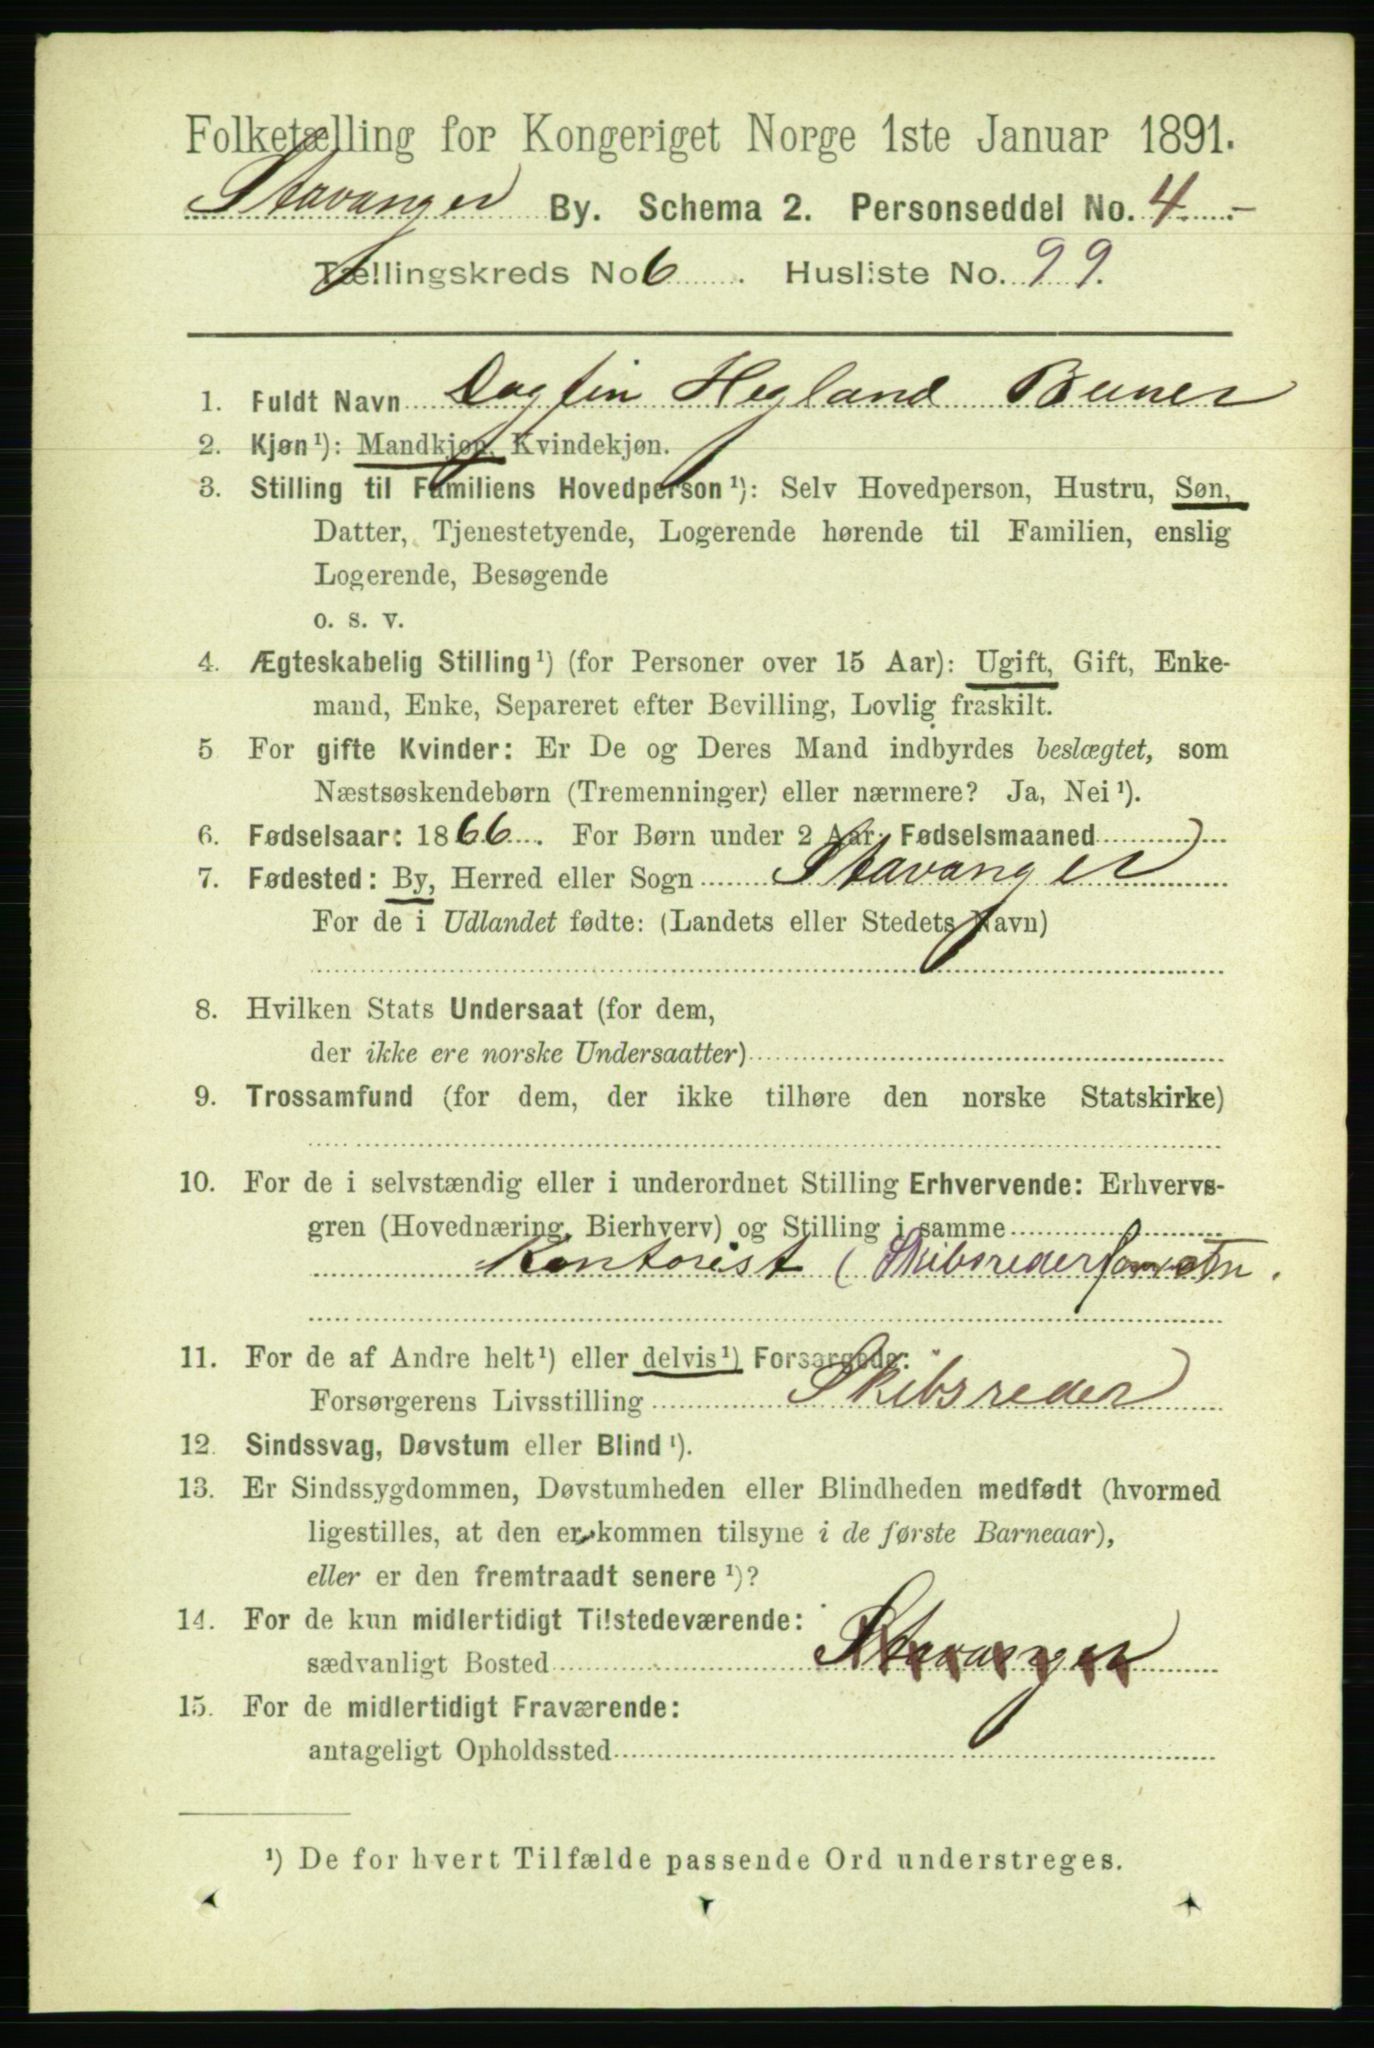 Folketælling for Kongeriget Norge 1ste Januar 1891.
Stavanger By. Schema 2. Personseddel No. 4.-
Tællingskreds No 6. Husliste No. 99.
1. Fuldt Navn Dagfin Hegland
2. Kjøn¹): Mandkjøn, Kvindekjøn.
3. Stilling til Familiens Hovedperson¹): Selv Hovedperson, Hustru, Søn,
Datter, Tjenestetyende, Logerende hørende til Familien, enslig
Logerende, Besøgende
o. s. v.
4. Ægteskabelig Stilling¹) (for Personer over 15 Aar): Ugift, Gift, Enke-
mand, Enke, Separeret efter Bevilling, Lovlig fraskilt.
5 For gifte Kvinder: Er De og Deres Mand indbyrdes beslægtet, som
Næstsøskendebørn (Tremenninger) eller nærmere? Ja, Nei¹).
6. Fødselsaar: 1866. For Børn under 2 Aar: Fødselsmaaned
7. Fødested: By, Herred eller Sogn Stavanger
For de i Udlandet fødte: (Landets eller Stedets Navn)
8. Hvilken Stats Undersaat (for dem,
der ikke ere norske Undersaatter)
9. Trossamfund (for dem, der ikke tilhøre den norske Statskirke)
10. For de i selvstændig eller i underordnet Stilling Erhvervende: Erhvervs-
gren (Hovednæring, Bierhverv) og Stilling i samme
Kontorist (
11. For de af Andre helt¹) eller delvis¹) Forsørgede:
Forsørgerens Livsstilling Skibsreder
12. Sindssvag, Døvstum eller Blind¹).
13. Er Sindssygdommen, Døvstumheden eller Blindheden medfødt (hvormed
ligestilles, at den er kommen tilsyne i de første Barneaar),
eller er den fremtraadt senere¹)?
14. For de kun midlertidigt Tilstedeværende:
sædvanligt Bosted Stavanger
15. For de midlertidigt Fraværende:
antageligt Opholdssted
¹) De for hvert Tilfælde passende Ord understreges.